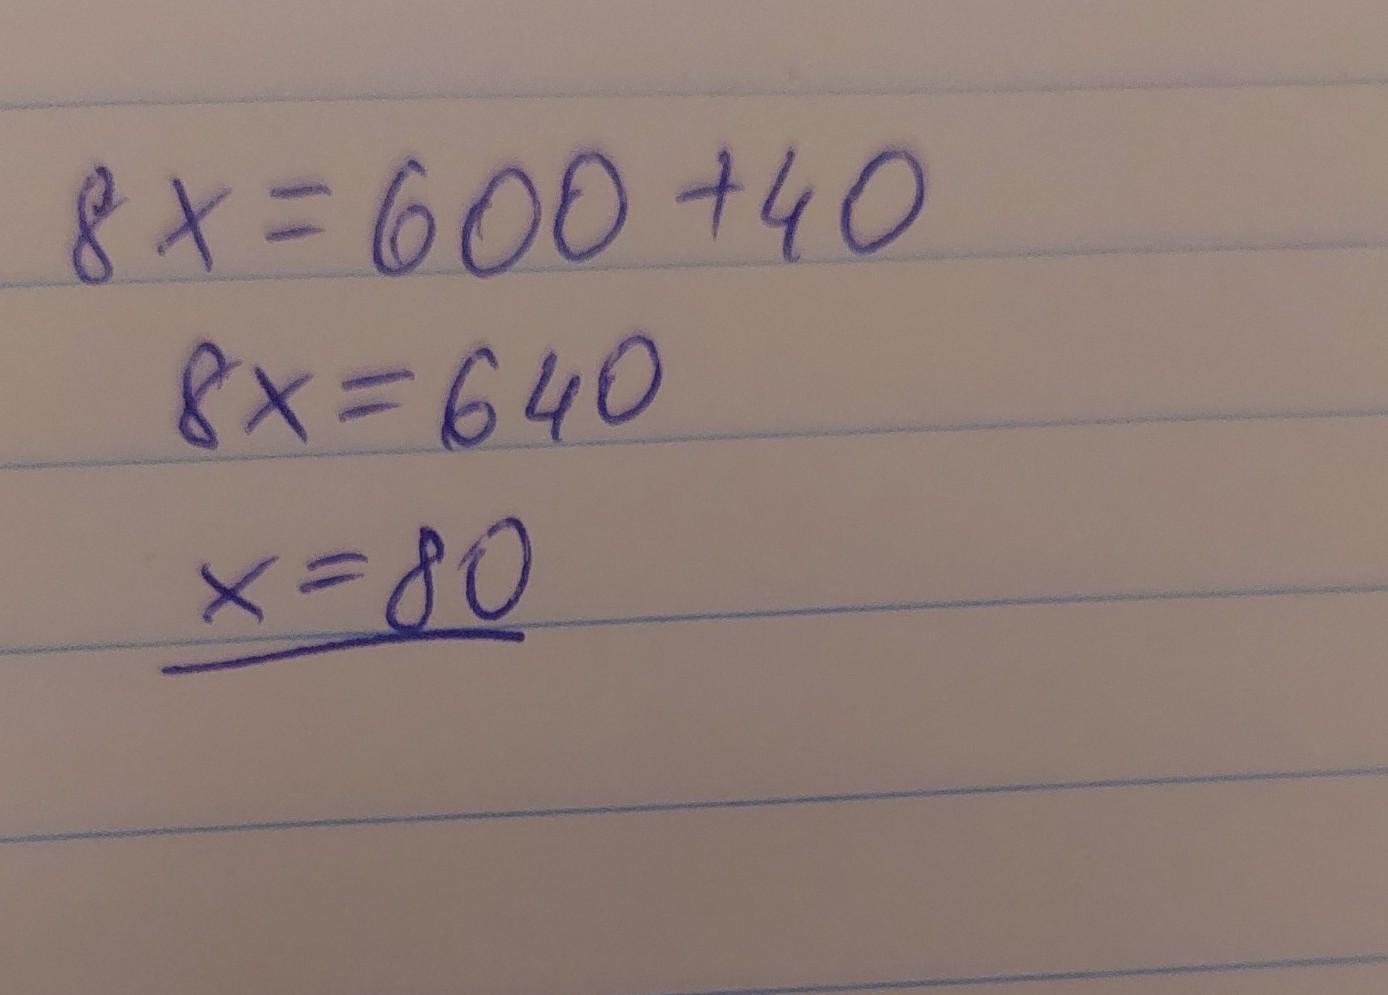 8x=600+40
8x=640
x=80